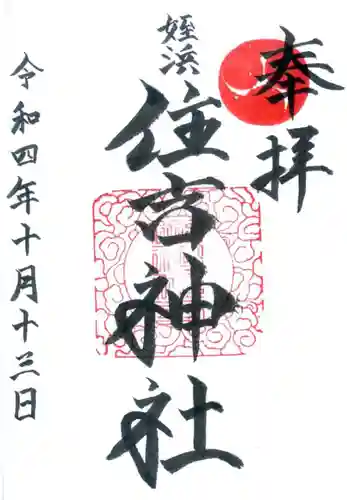 奉拝
姪浜
住吉神社
令和四年十月十三日